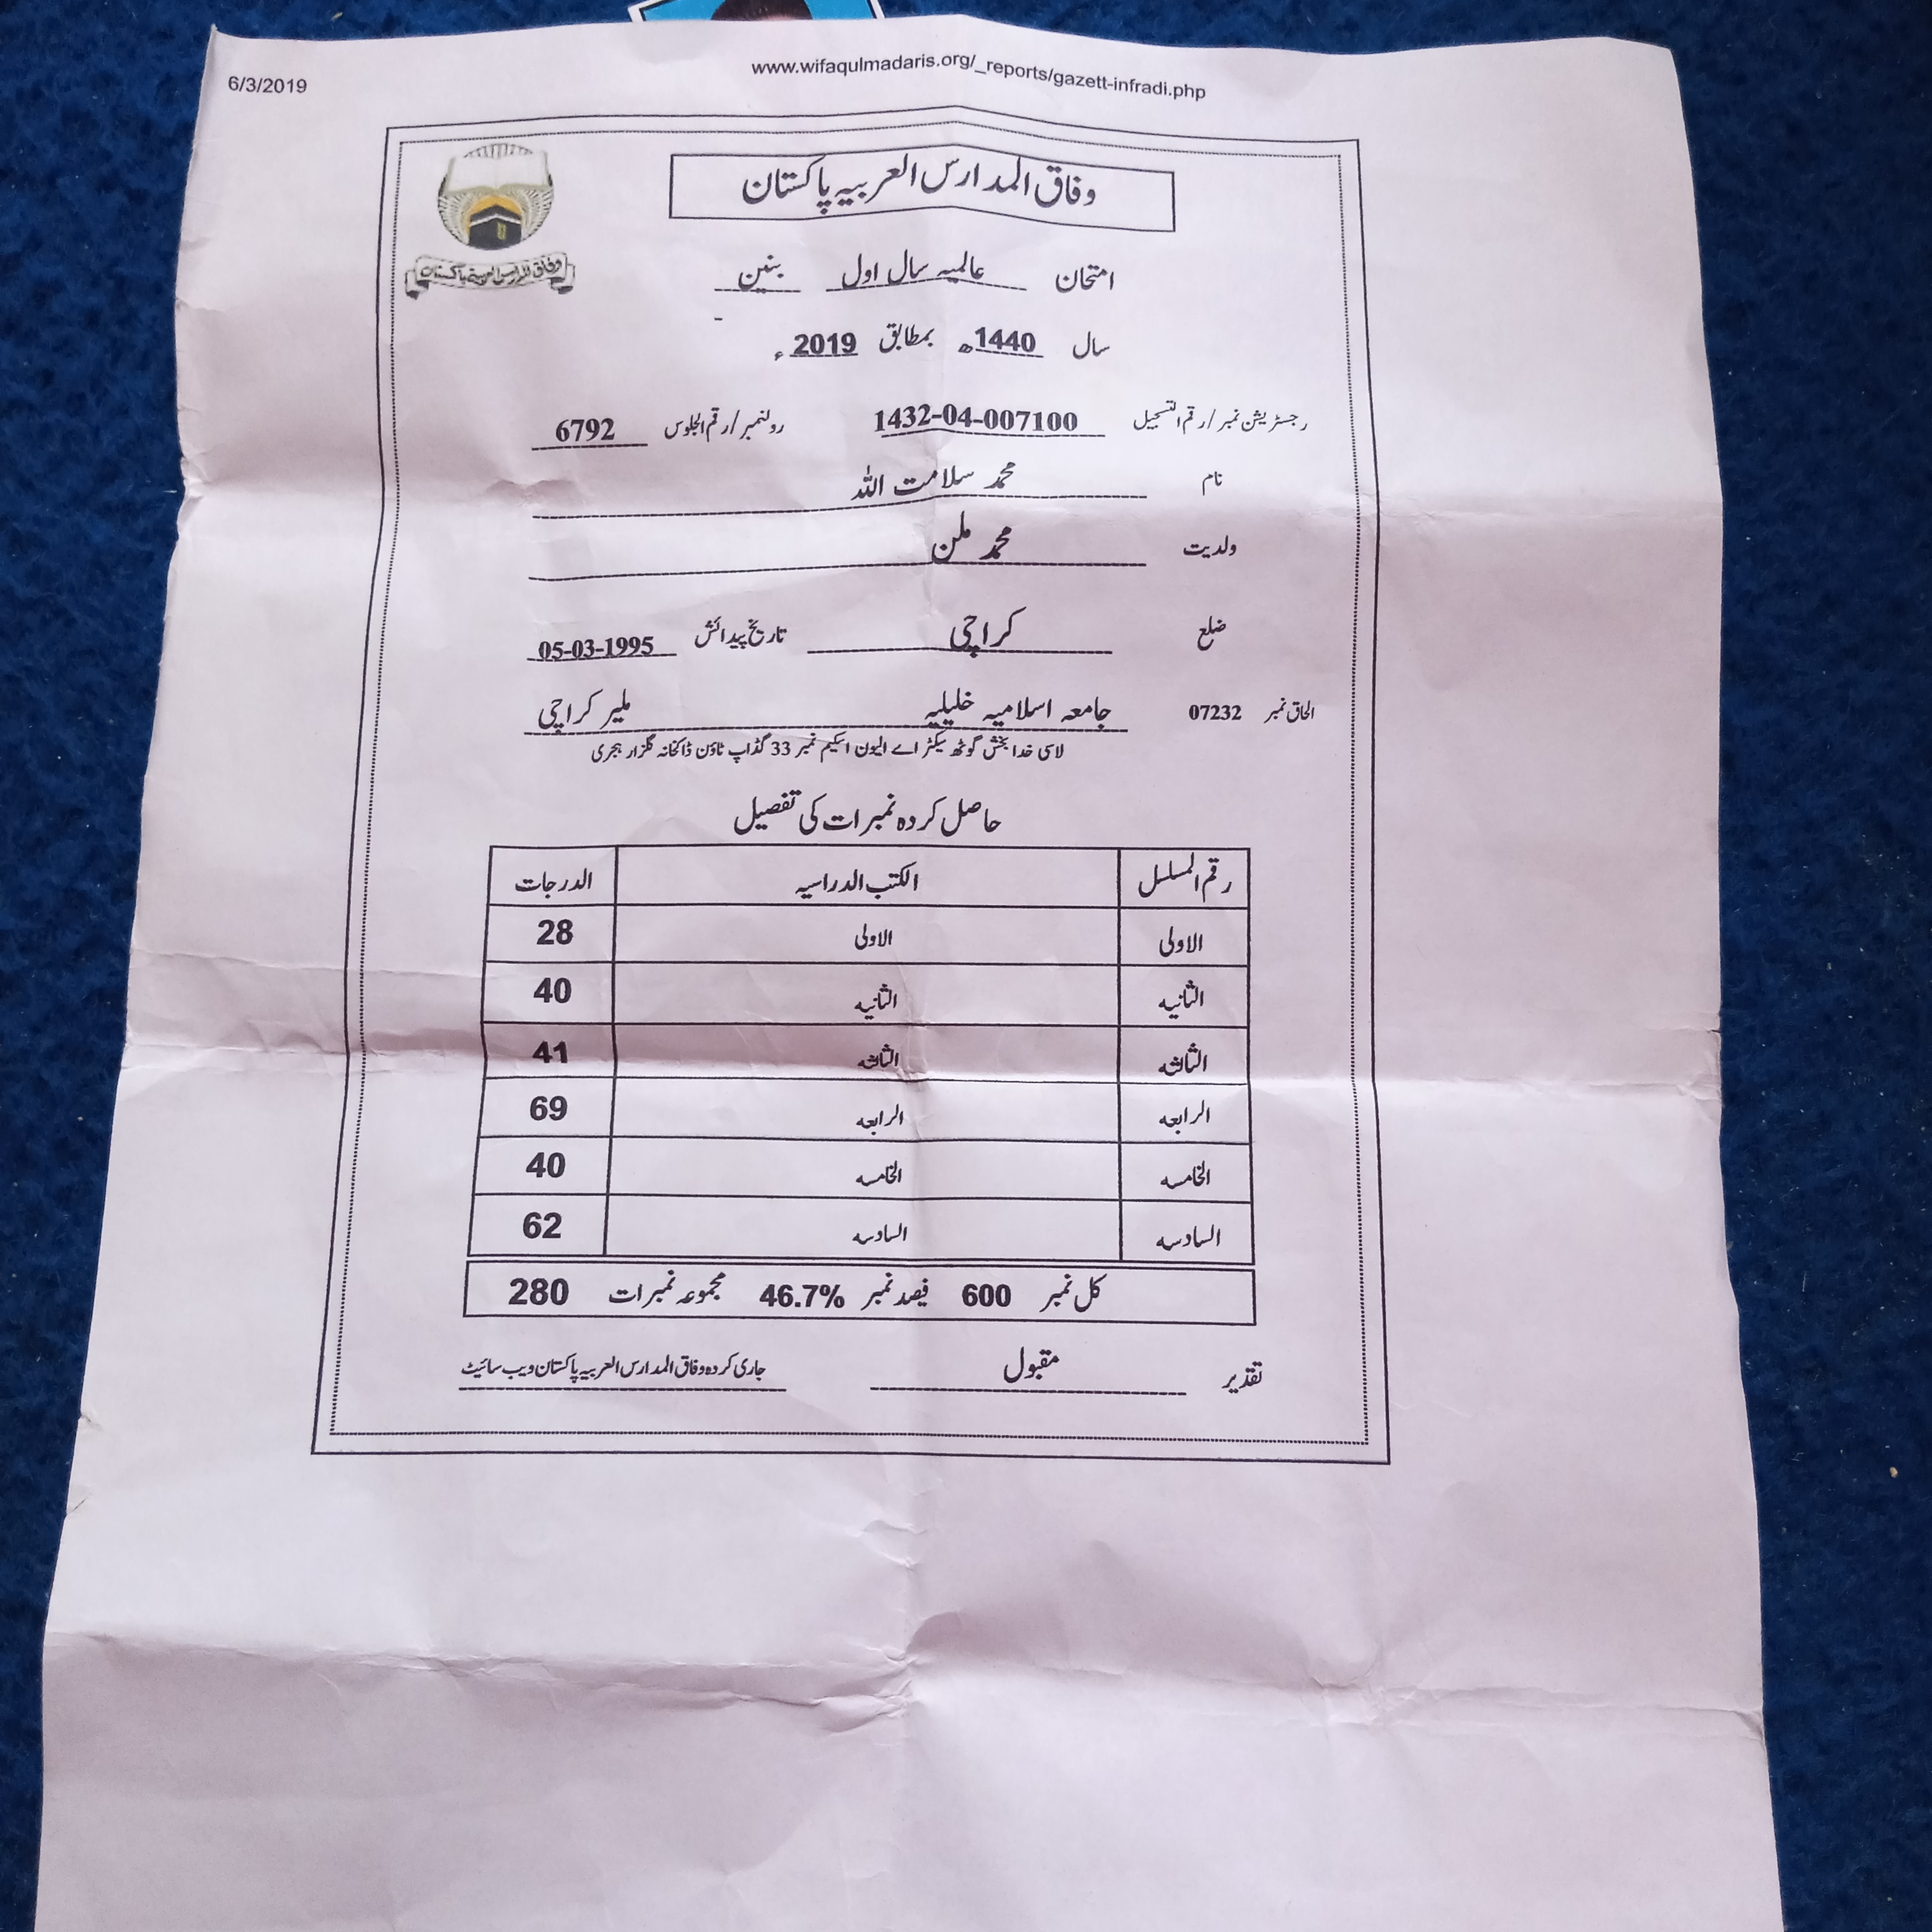 6/3/2019
www.wifaqulmadaris.org/_reports/gazett-infradi.php
وفاق المدارس العربیہ پاکستان
وفاق المدارس العربیہ پاکستان
امتحان عالمیہ سال اول بنین
سال 1440ھ بمطابق 2019ء
رجسٹریشن نمبر/رقم التسجیل 1432-04-007100 رولنمبر/رقم الجلوس 6792
نام محمد سلامت اللہ
ولدیت محمد ملن
ضلع کراچی تاریخ پیدائش 05-03-1995
الحاق نمبر 07232 جامعہ اسلامیہ خلیلیہ ملیر کراچی
لاسی خدا بخش گوٹھ سیکٹر اے الیون اسکیم نمبر 33 گڈاپ ٹاؤن ڈاکخانہ گلزار ہجری
حاصل کردہ نمبرات کی تفصیل
رقم المسلسل الکتب الدراسیہ الدرجات
الاولی الاولی 28
الثانیہ الثانیہ 40
الثالثہ الثالثہ 41
الرابعہ الرابعہ 69
الخامسہ الخامسہ 40
السادسہ السادسہ 62
کل نمبر 600 فیصد نمبر 46.7% مجموعہ نمبرات 280
تقدیر مقبول جاری کردہ وفاق المدارس العربیہ پاکستان ویب سائیٹ